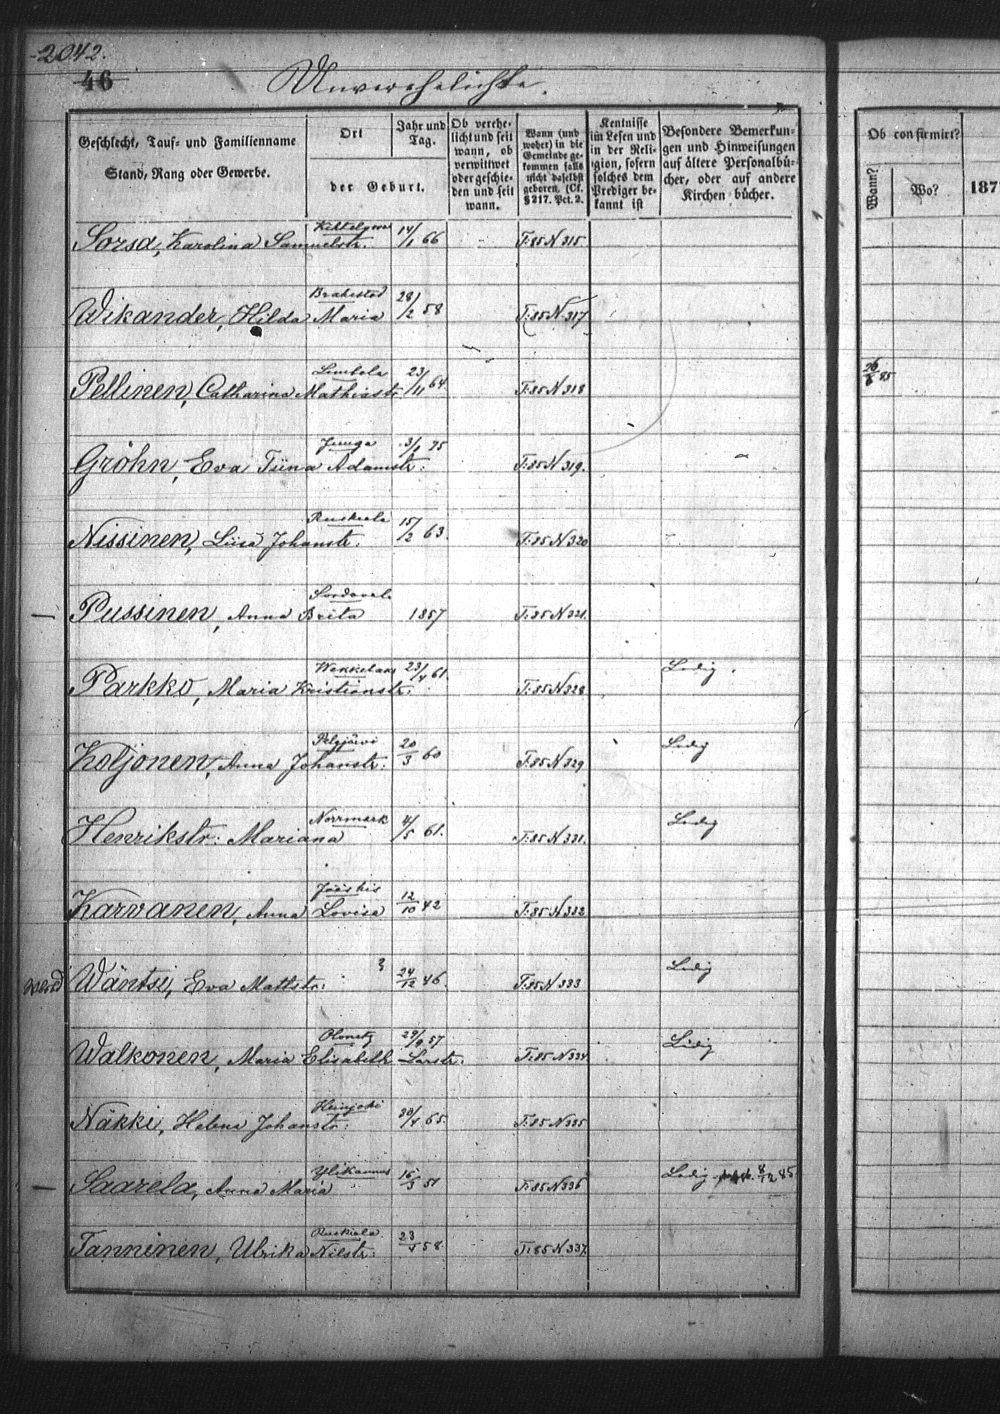 2042.
46
Unverehelichte.
Geschlecht, Tauf- und Familienname
Stand, Rang oder Gewerbe.
Ort
der Geburt.
Jahr und
Tag.
Ob verehe-
licht und seit
wann, ob
verwittwet
oder geschie-
den und seit
wann.
Wann (und
woher) in die
Gemeinde ge-
kommen falls
nicht daselbst
geboren. (Cf.
§ 217. Pct. 2.
Kentnisse
im Lesen und
in der Reli-
gion, sofern
solches dem
Prediger be-
kannt ist
Besondere Bemerkun-
gen und Hinweisungen
auf ältere Personalbü-
cher, oder auf andere
Kirchen bücher.
Ob confirmirt?
Wann?
Wo?
187
14/1 66
Sorsa, Karolina Samuelstr. T: 85 N 315.
Brahestad 28/2 58
Wikander, Hilda Maria T: 85 N 317
23/11 64
Pellinen, Catharina Mathiastr. T: 85 N 318
26/8 85
Juuga
Gröhn, Eva Tiina Adamstr: T: 85 N 319.
Ruskeala 15/2 63.
Nissinen, Liisa Johanstr. T: 85 N 320
Sordaval
Pussinen, Anna Brita 1857 T: 85 N 321.
Wekkelaks 23/4 61. Ledig.
Parkko, Maria Kristianstr: T: 85 N 328
Pelgjärvi 20/3 60 Ledig
Koljonen, Anna Johanstr: T: 85 N 329
Norrmark 4/5 61. Ledig
Henrikstr: Mariana T: 85 N 331.
Jääskis 12/10 42
Karvanen, Anna Lovisa T: 85 N 332
? 24/12 46. Ledig
Wäntsi, Eva Mattstr: T: 85 N 333
Olonetz 29/9 57 Ledig
Walkonen, Maria Elisabeth Larstr: T: 85 N 334
Heinjoki 20/4 65.
Näkki, Helena Johanstr: T: 85 N 335
Ylikannus 15/3 51 Ledig 8/12 85.
Saarela, Anna Maria T: 85 N 336
Ruskiala 23/4 58
Tanninen, Ulrika Nilstr: T: 85 N 337.